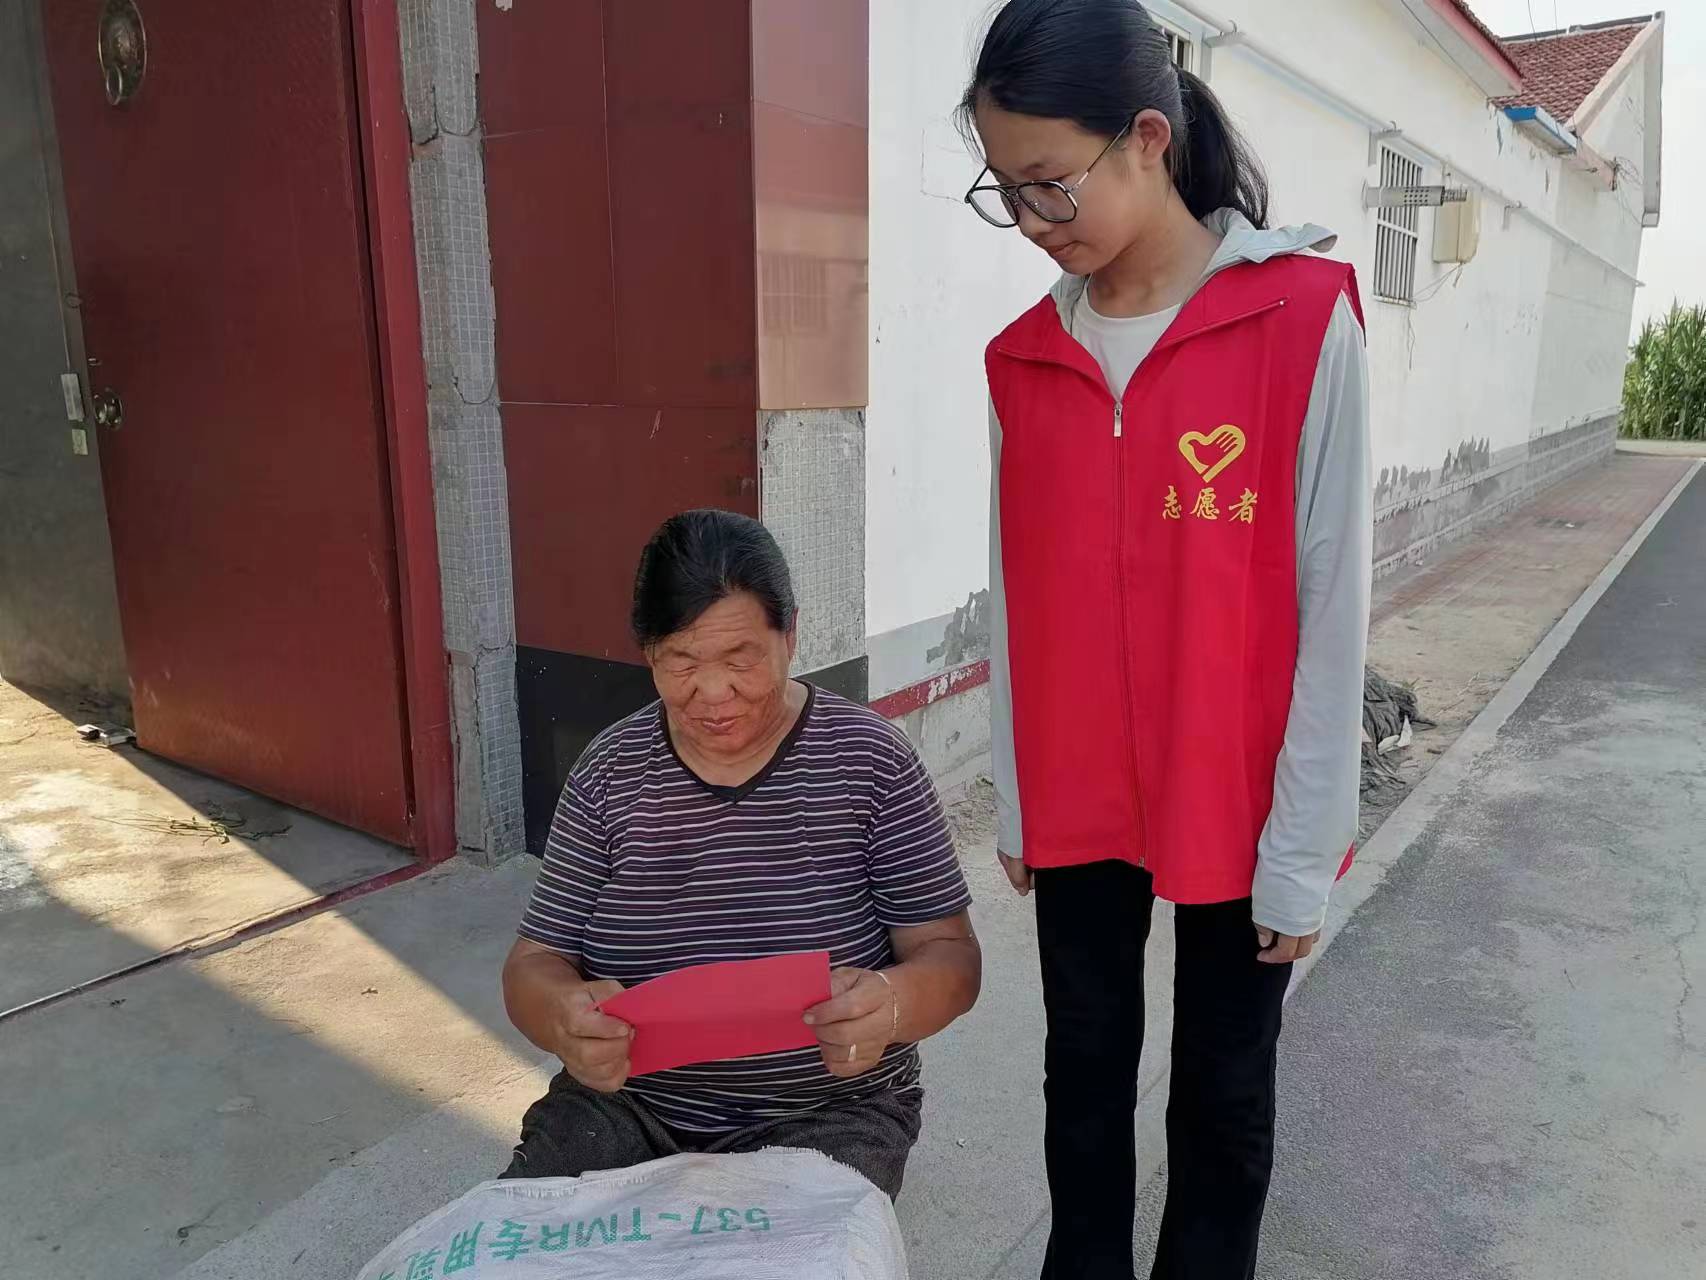 志愿者
537-TMR专用